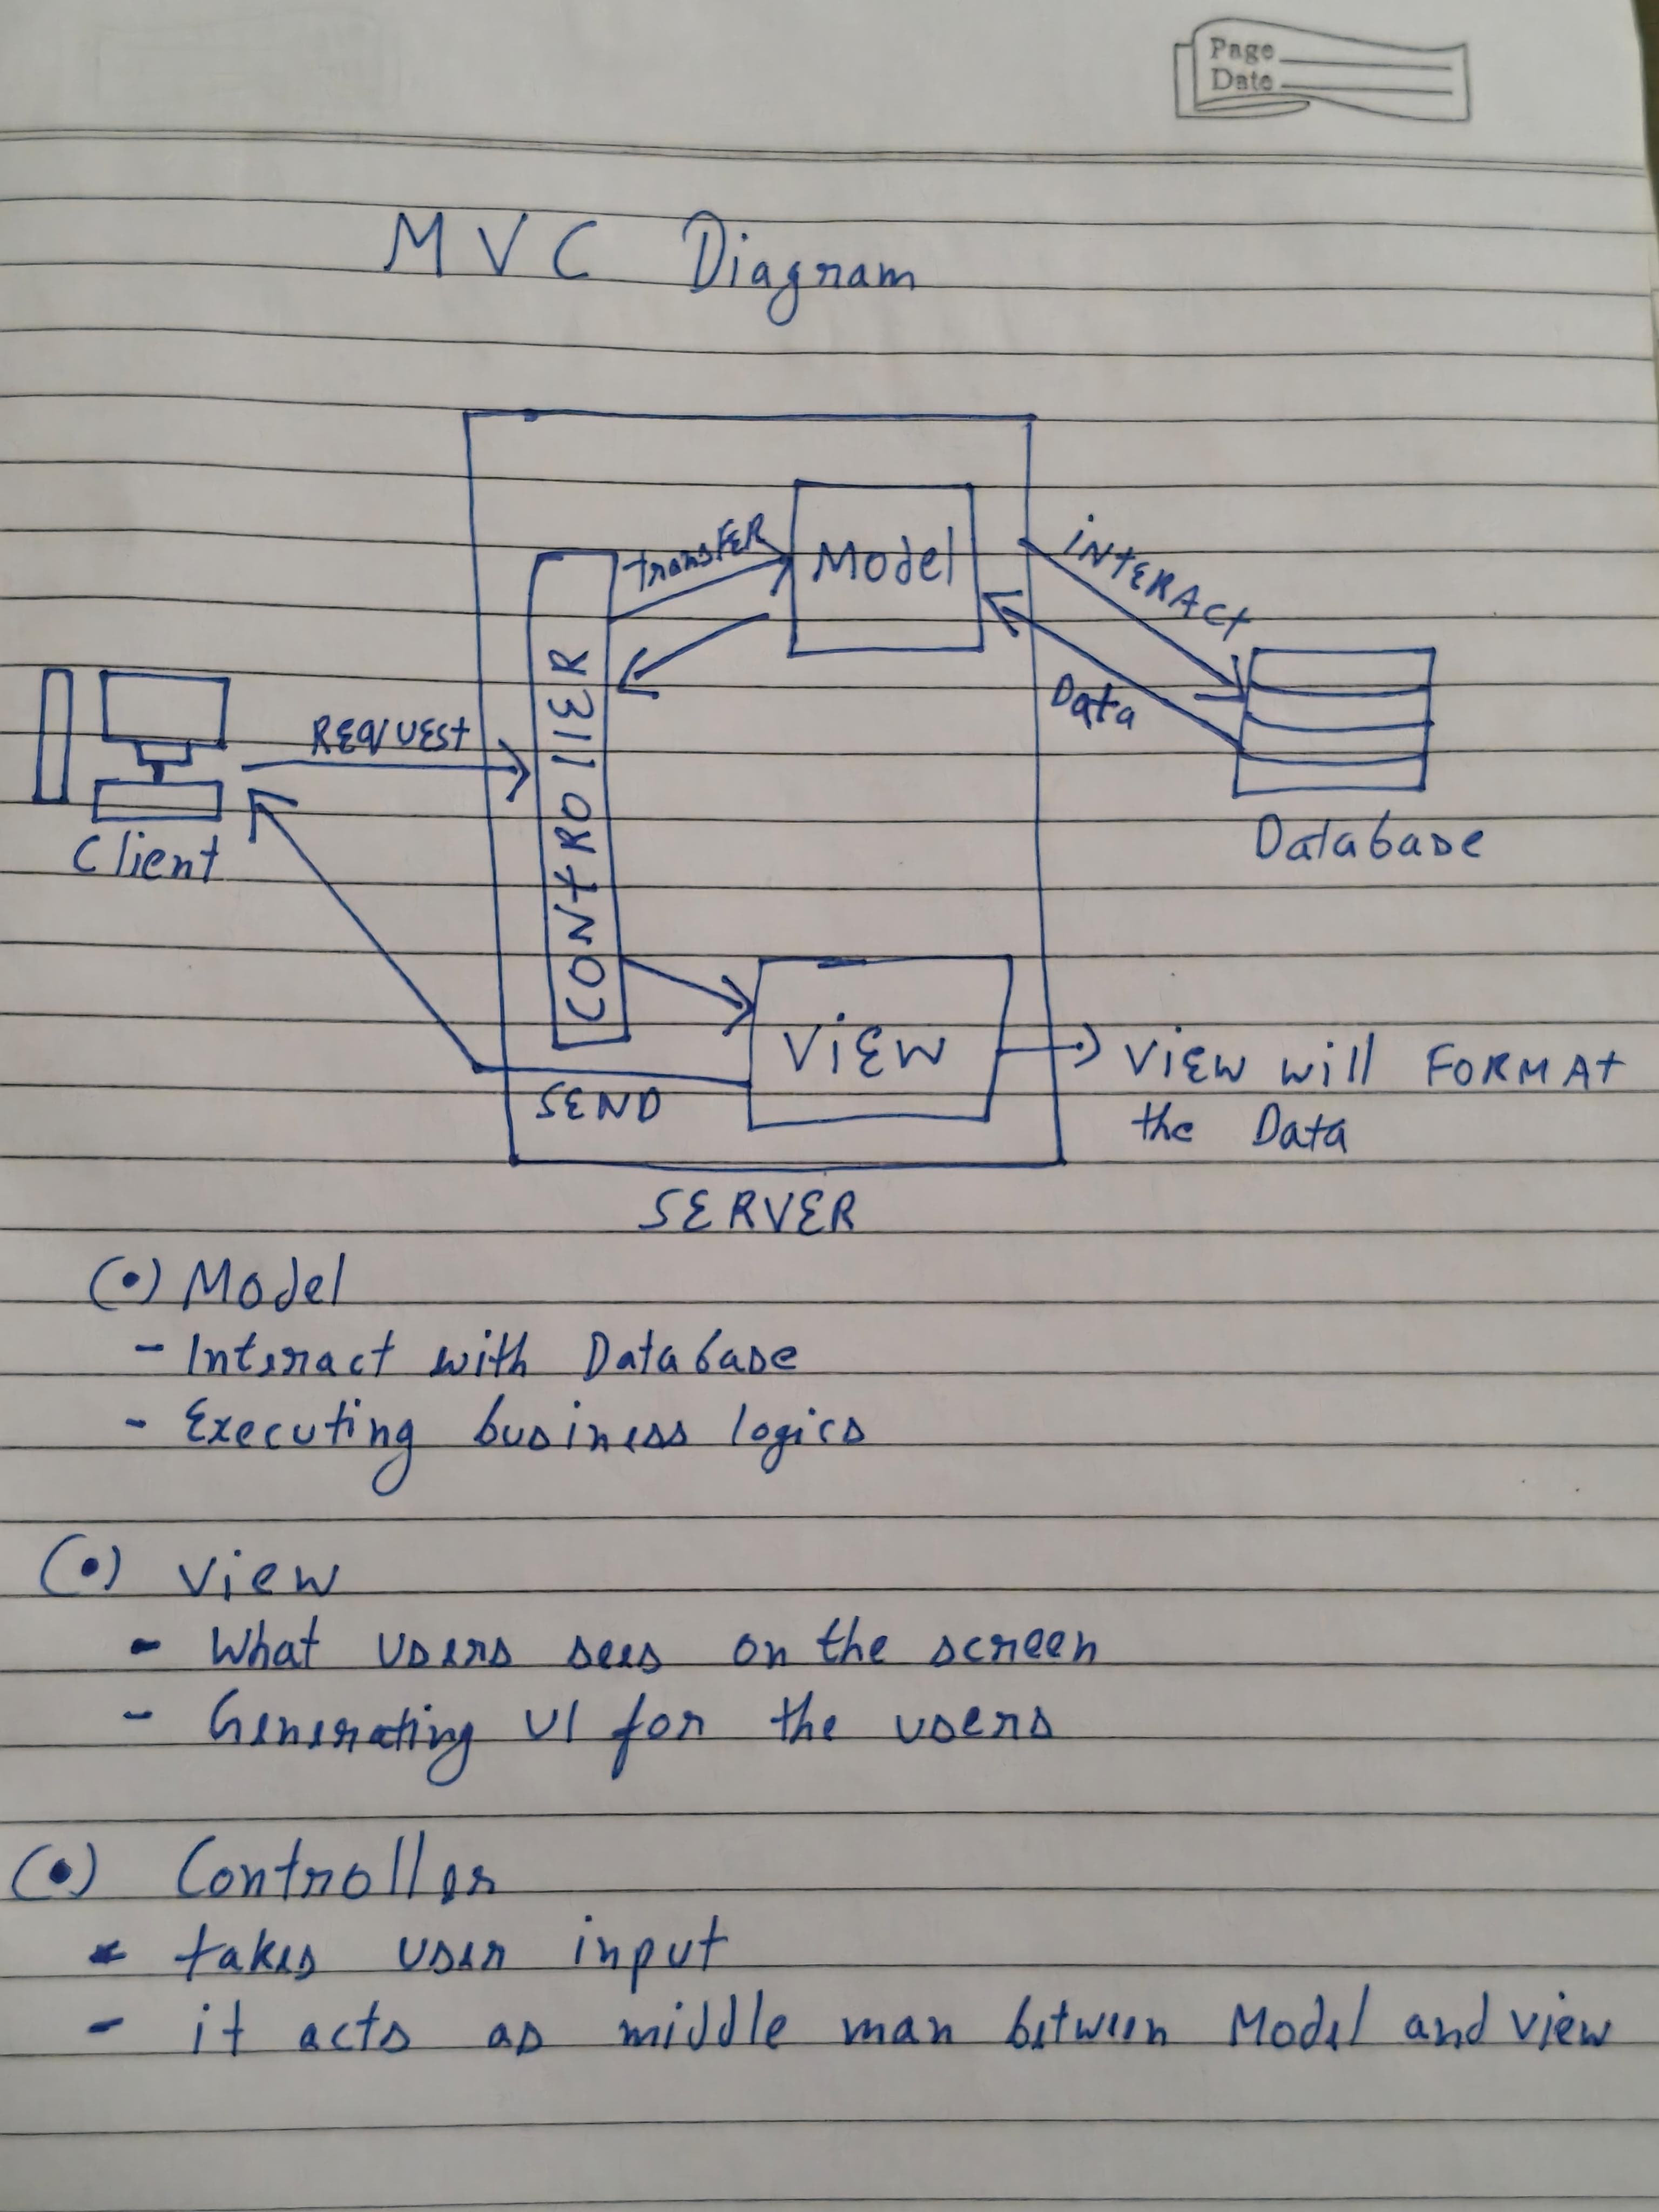 Page
Date
MVC Diagram
transFER
Model
INTERACt
Data
REQUESt
CONtROllER
Client
Database
ViEW
View will FORMAt
the Data
SEND
SERVER
(•) Model
- Interact with Database
- Executing business logics
(•) View
- What users sees on the screen
- Generating UI for the users
(•) Controller
- takes user input
- it acts as middle man between Model and view